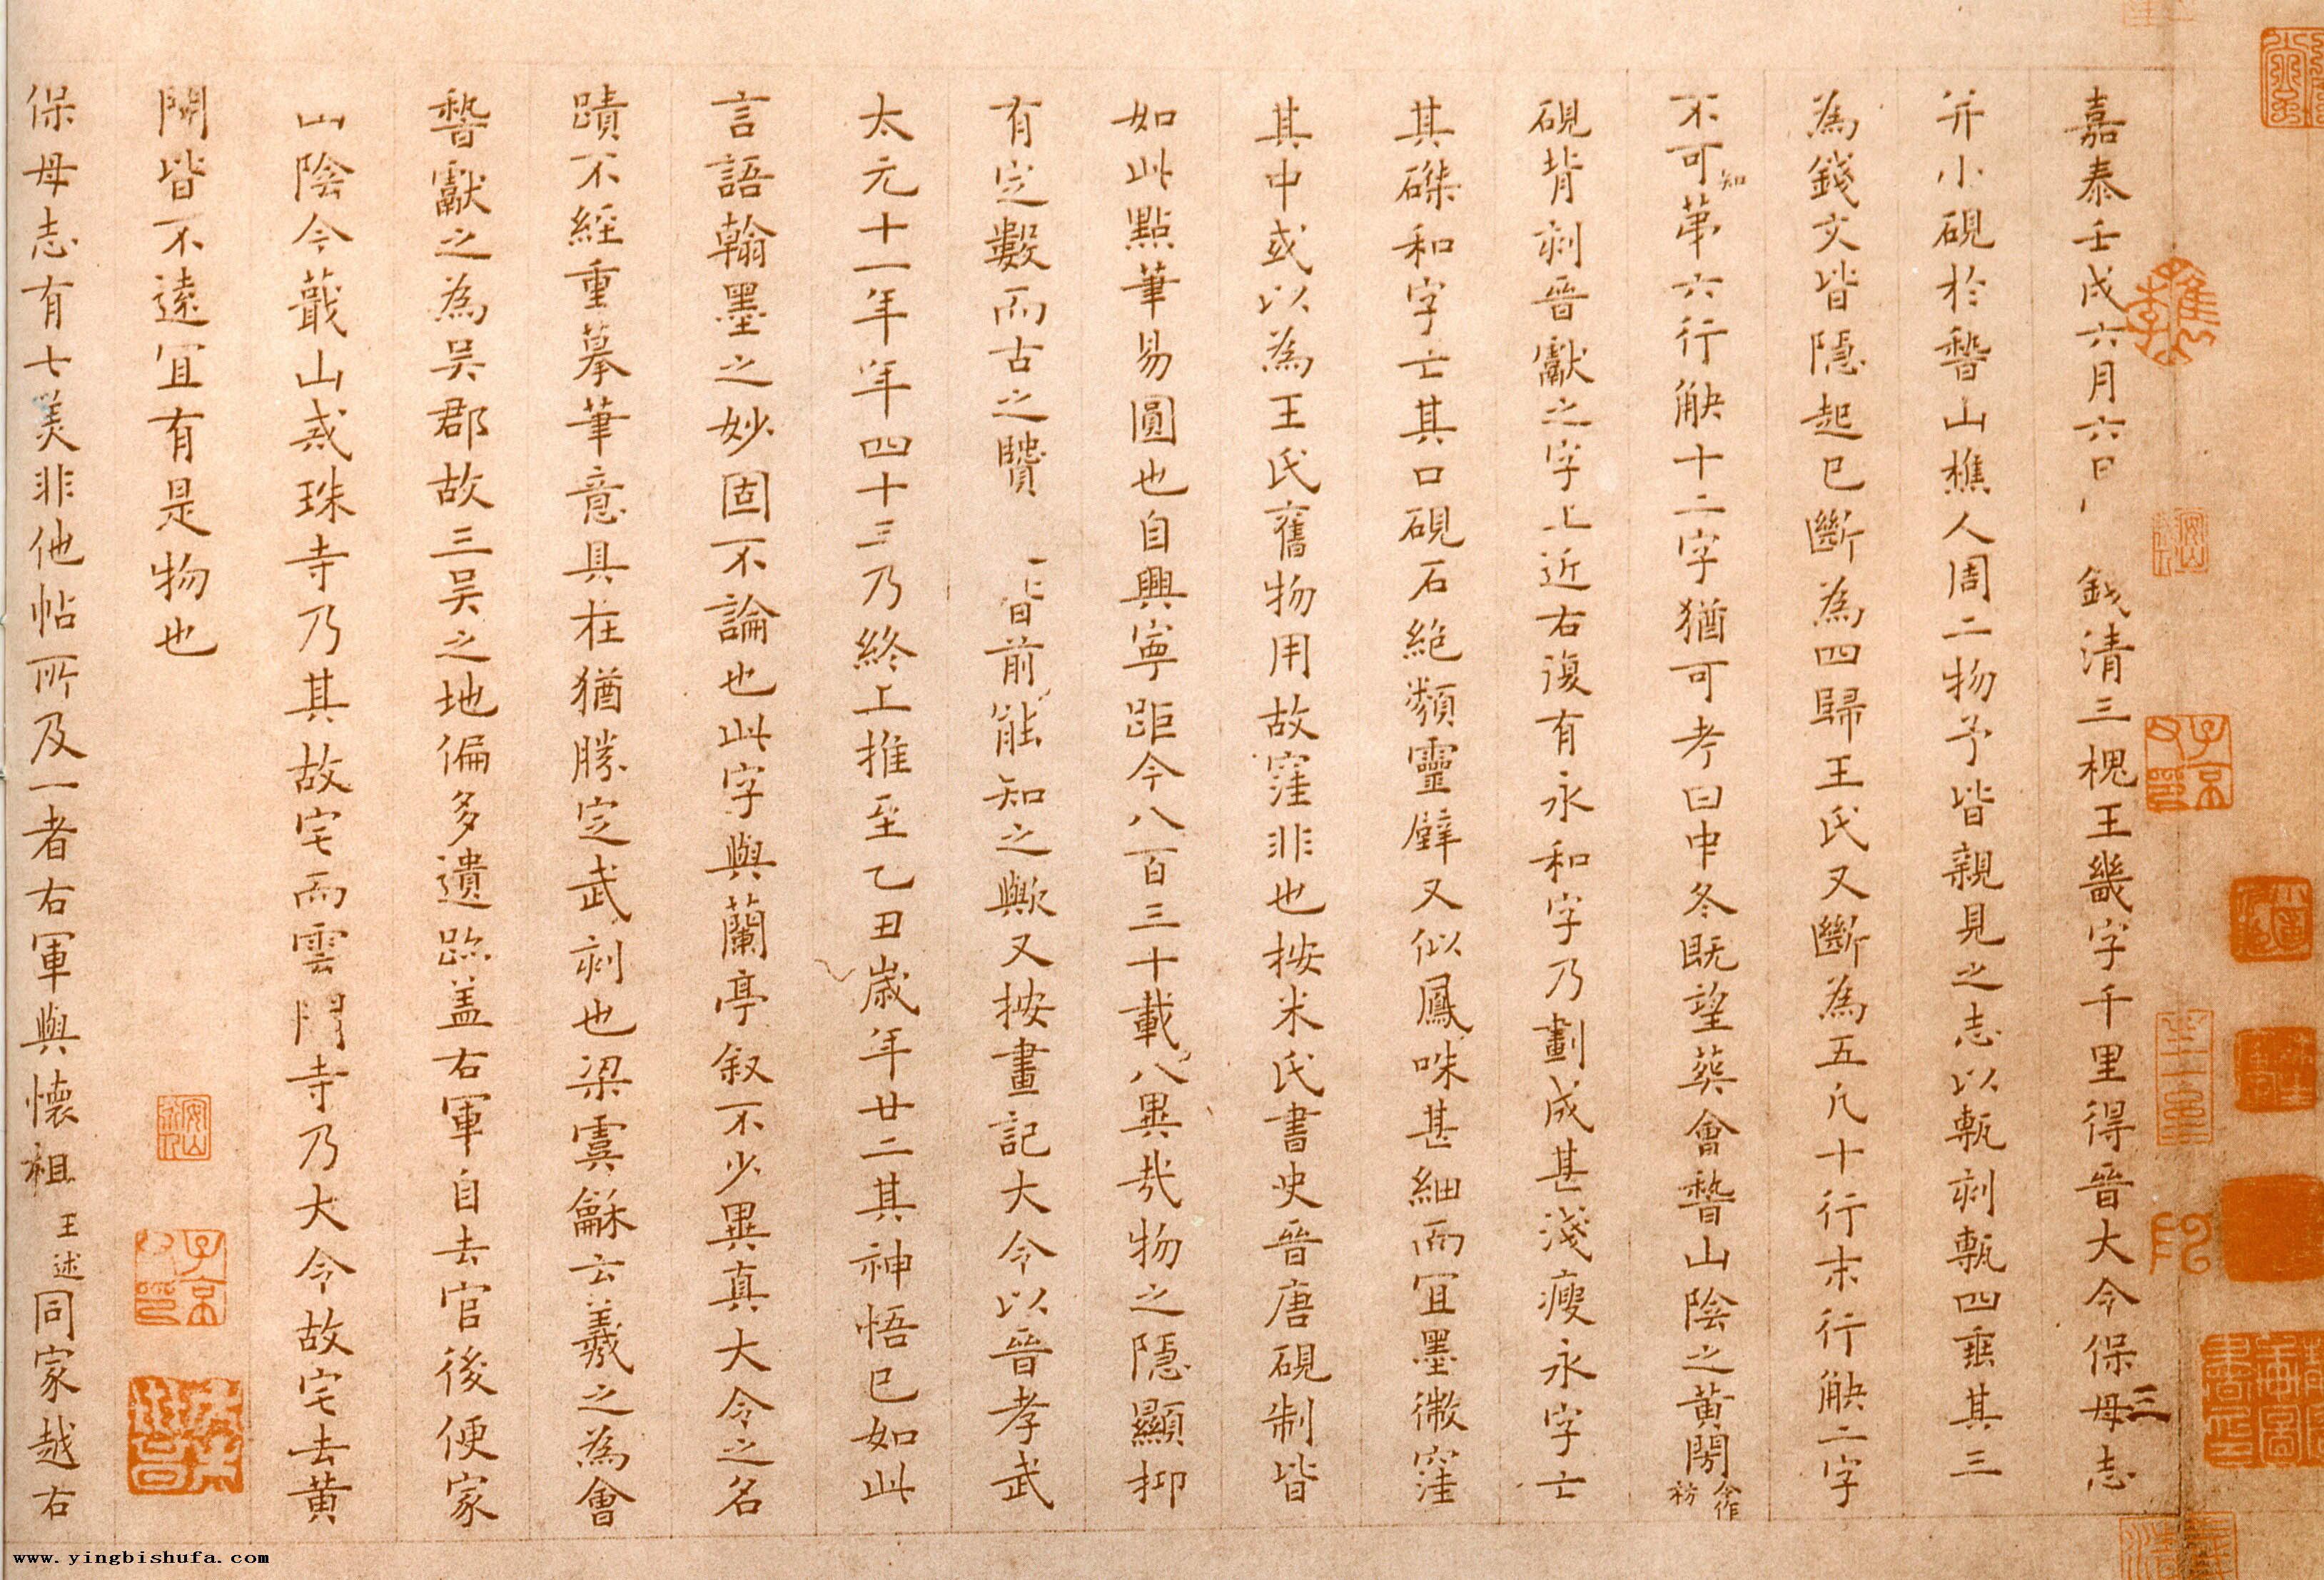 嘉泰壬戌六月六日 錢清三槐王畿字千里得晉大令保母志
并小硯於稽山樵人周二物予皆親見之志以甎刻甎四垂其三
為錢文皆隱起已斷為四歸王氏又斷為五凡十行末行缺二字
不可知第六行缺十二字猶可考曰中冬既望葬會稽山陰之黃閍今作祊
硯背刻晉獻之字上近右復有永和字乃劃成甚淺瘦永字亡
其磔和字亡其口硯石絕類靈壁又似鳳咮甚細而宜墨微窪
其中或以為王氏舊物用故窪非也按米氏書史晉唐硯制皆
如此點筆易圓也自興寧距今八百三十載異哉物之隱顯抑
有定數而古之贒 皆前能知之歟又按畫記大令以晉孝武
太元十一年年四十三乃終上推至乙丑歲年廿二其神悟已如此
言語翰墨之妙固不論也此字與蘭亭叙不少異真大令之名
蹟不經重摹筆意具在猶勝定武刻也梁虞龢云羲之為會
稽獻之為吳郡故三吳之地偏多遺跡蓋右軍自去官後便家
山陰今蕺山戒珠寺乃其故宅而雲門寺乃大令故宅去黃
閍皆不遠宜有是物也
保母志有七美非他帖所及一者右軍與懷祖王述同家越右
三
子京父印
www.yingbishufa.com